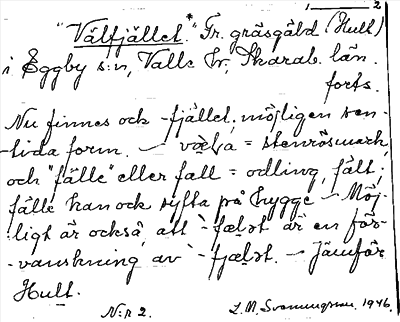 1 — 2
"Välfjället"* Fr. gräsgäld (Hult)
i Eggby s:n, Valle hr, Skarab. län.
forts.
Nu finnes ock -fjället, möjligen sen-
-tida form. — = stenrösmark
och "fälle" eller fall = odling, fält;
fälle kan ock syfta på hygge — Möj-
ligt är också, att är en för-
-vanskning av — Jämför
Hult.
N:r 2. L. M. Svenungsson. 1946.